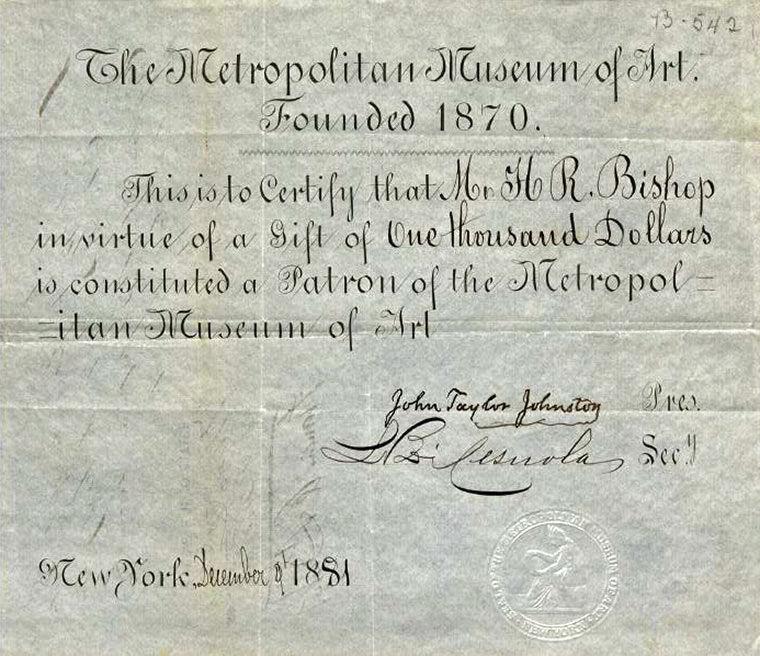 13-542
The Metropolitan Museum of Art.
Founded 1870.
This is to Certify that Mr H R. Bishop
in virtue of a Gift of One thousand Dollars
is constituted a Patron of the Metropol=
=itan Museum of Art
John Taylor Johnston Pres.
L P di Cesnola Sec.y
New York, December 9t 1881